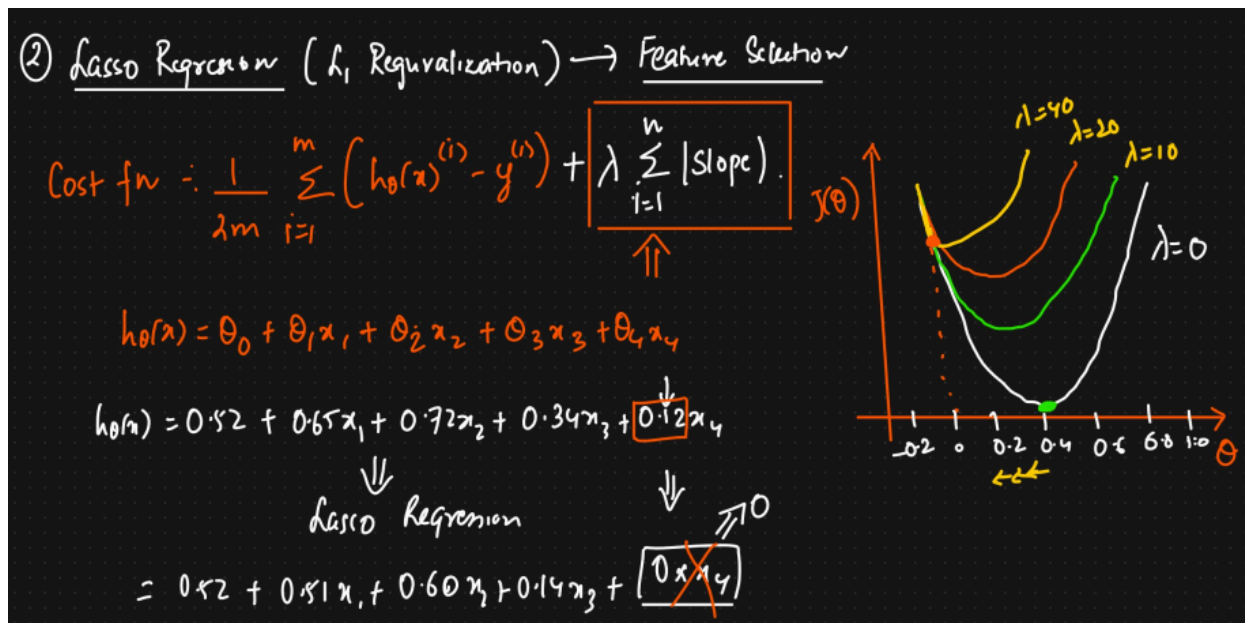 ② Lasso Regression (L₁ Reguralization) → Feature Selection
Cost fn :- 1/2m m Σ i=1 (hθ(x)⁽ⁱ⁾ - y⁽ⁱ⁾) + λ n Σ i=1 |Slope).
hθ(x) = θ₀ + θ₁x₁ + θ₂x₂ + θ₃x₃ + θ₄x₄
hθ(x) = 0.52 + 0.65x₁ + 0.72x₂ + 0.34x₃ + 0.12x₄
Lasso Regression
⇒ 0
= 0.52 + 0.51x₁ + 0.60x₂ + 0.14x₃ + 0xx₄
λ=40
λ=20
λ=10
J(θ)
λ=0
-0.2 0 0.2 0.4 0.6 0.8 1.0 θ